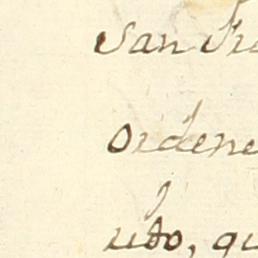 San Fra
Ordene
uto, qu